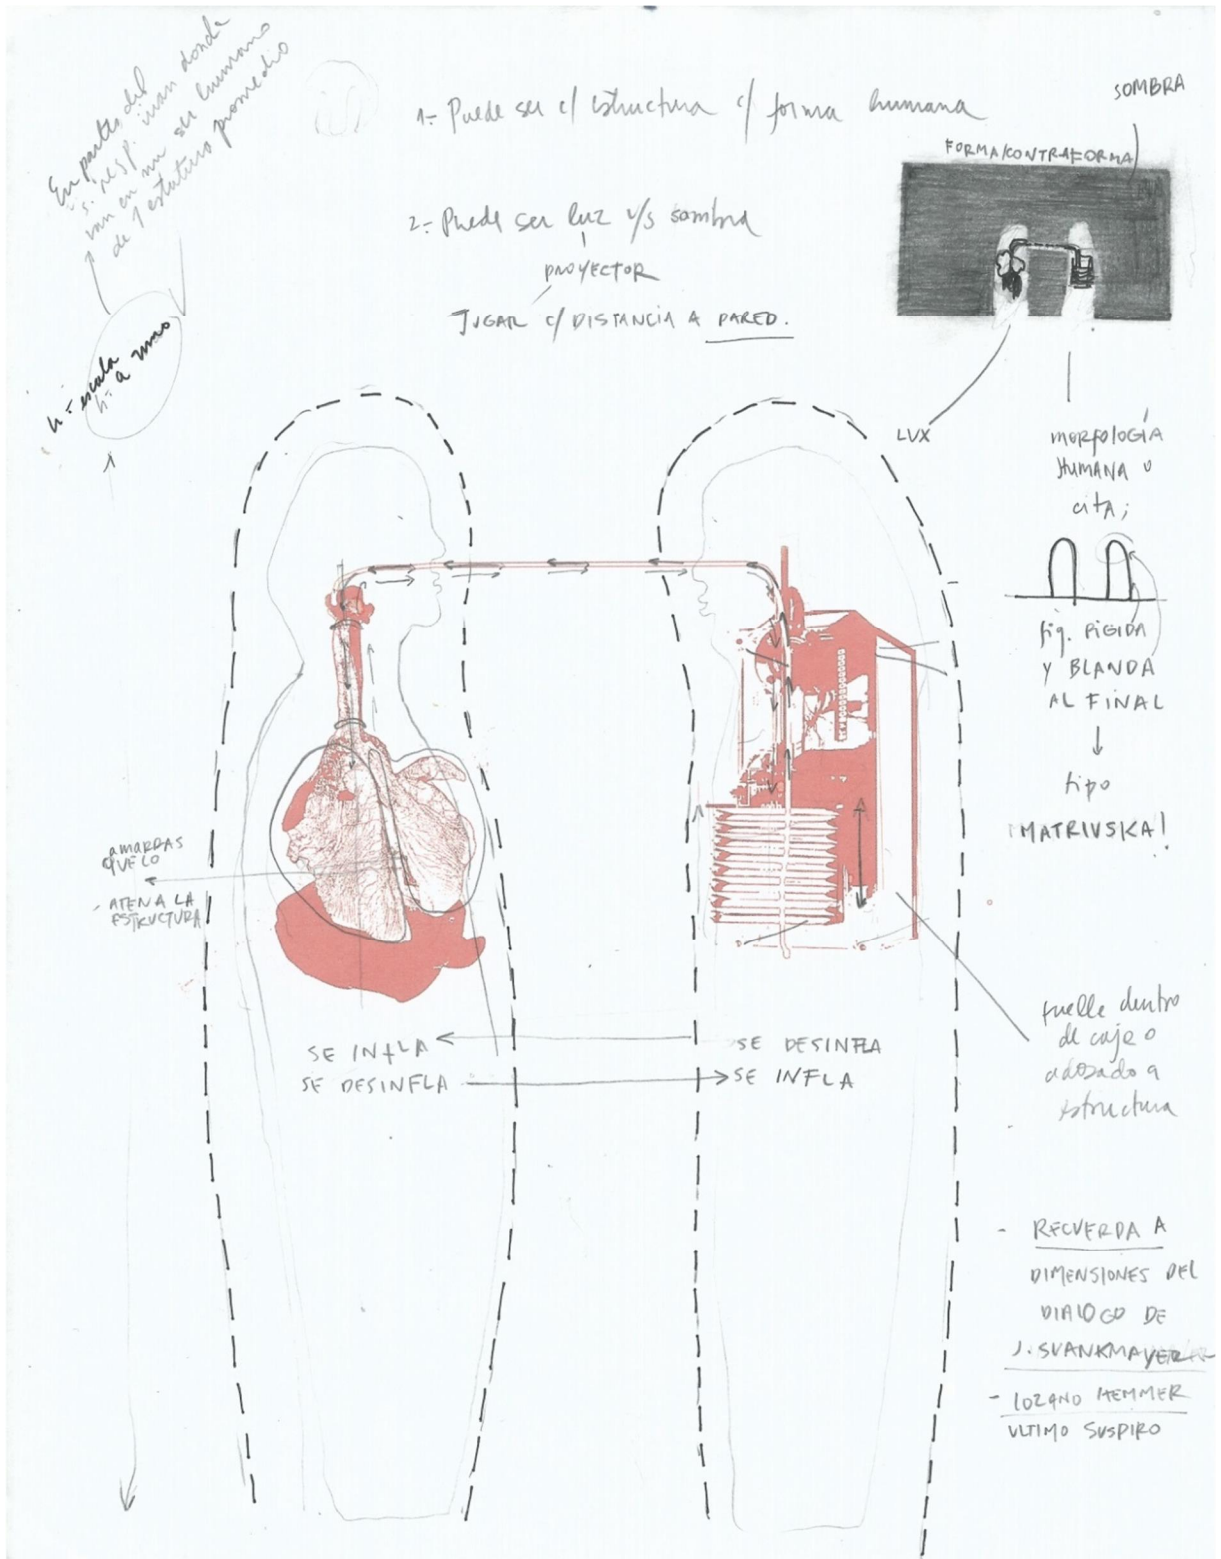 En partes del
s. resp. irian donde
van en un ser humano
de 1 estatura promedio
h = escala
h = a muro
1- Puede ser c/ estructura c/ forma humana
2- Puede ser luz v/s sombra
PROYECTOR
JUGAR c/ DISTANCIA A PARED.
SOMBRA
FORMA/CONTRAFORMA
LUX
MORFOLOGÍA
HUMANA U
cita;
fig. RIGIDA
Y BLANDA
AL FINAL
tipo
MATRIUSKA!
AMARRAS
O VELO
- ATEN A LA
ESTRUCTURA
SE INFLA
SE DESINFLA
SE DESINFLA
SE INFLA
fuelle dentro
de caja o
adosado a
estructura
- RECUERDA A
DIMENSIONES DEL
DIALOGO DE
J. SVANKMAYER
- LOZANO HEMMER
ULTIMO SUSPIRO